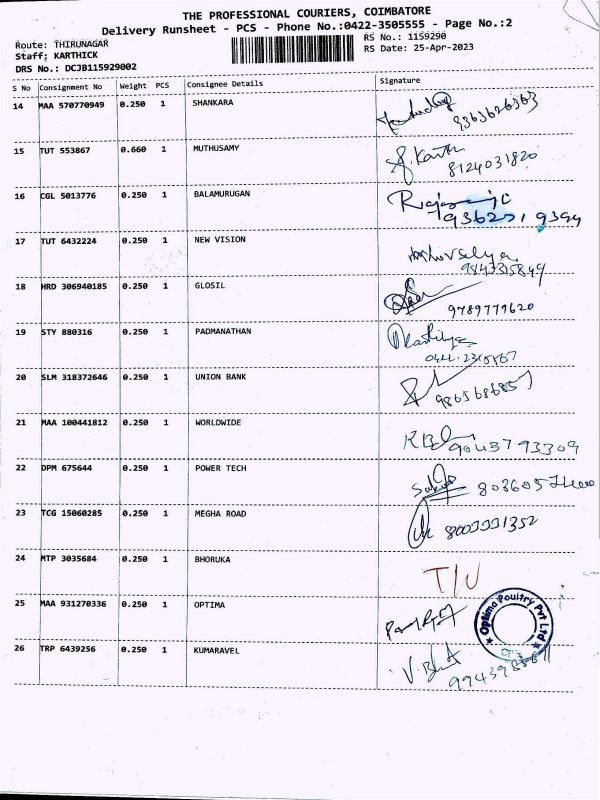 THE PROFESSIONAL COURIERS, COIMBATORE
Delivery Runsheet - PCS - Phone No.:0422-3505555 - Page No.:2
Route: THIRUNAGAR
RS No.: 1159290
Staff: KARTHICK
RS Date: 25-Apr-2023
DRS No.: DCJB115929002
S No Consignment No Weight PCS Consignee Details Signature
14 MAA 570770949 0.250 1 SHANKARA
15 TUT 553867 0.660 1 MUTHUSAMY
S. Karth
8124031820
16 CGL 5013776 0.250 1 BALAMURUGAN
17 TUT 6432224 0.250 1 NEW VISION
18 HRD 306940185 0.250 1 GLOSIL
9789779620
19 STY 880316 0.250 1 PADMANATHAN
20 SLM 318372646 0.250 1 UNION BANK
21 MAA 100441812 0.250 1 WORLDWIDE
9043793309
22 DPM 675644 0.250 1 POWER TECH
23 TCG 15060285 0.250 1 MEGHA ROAD
24 MTP 3035684 0.250 1 BHORUKA
25 MAA 931270336 0.250 1 OPTIMA
Optima Poultry Pvt Ltd
26 TRP 6439256 0.250 1 KUMARAVEL